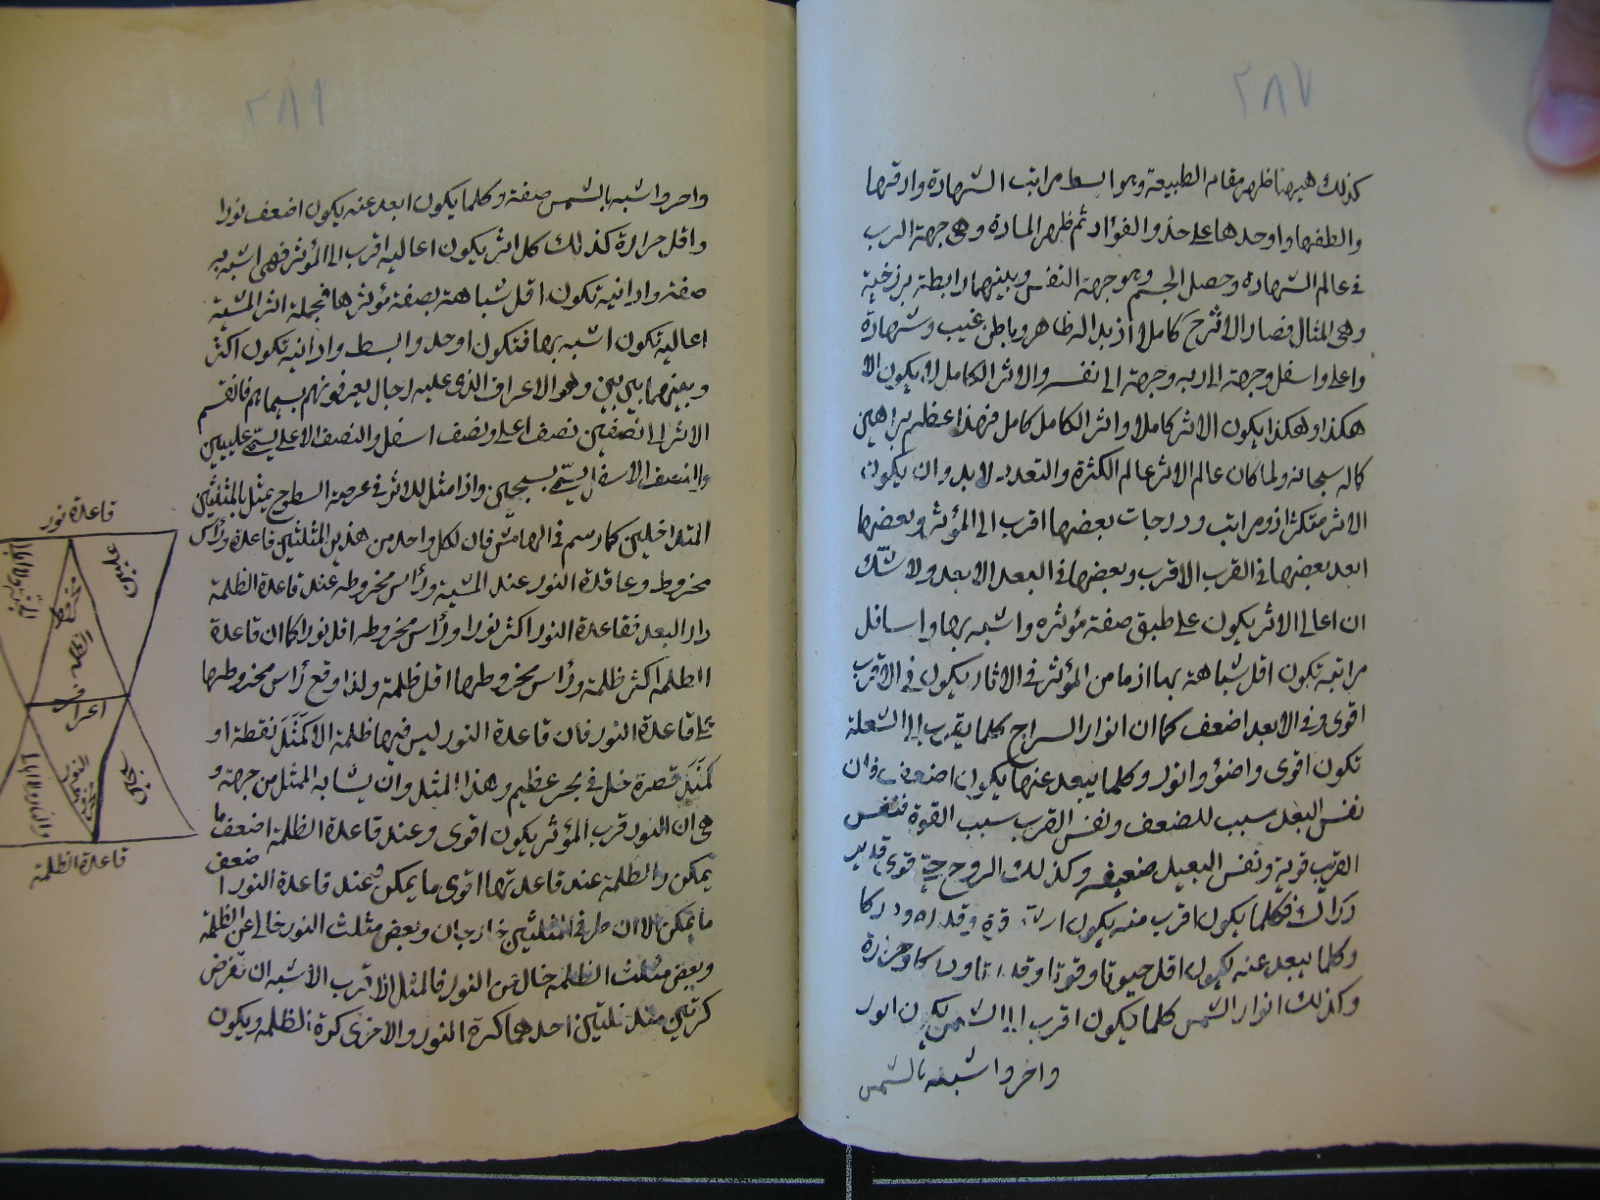 ٢٨٧
كذلك هيهنا ظهر مقام الطبيعة وهو ابسط مراتب الشهادة وادقها
والطفها واوحدها على حذو الفؤاد ثم ظهر المادة وهى جهة الرب
فى عالم الشهادة وحصل الجسم وهو جهة النفس وبينهما رابطة برزخية
وهى المثال فصار الاثر ح كاملا اذ بدا له ظاهر وباطن غيب وشهادة
واعلى واسفل وجهة الى ربه وجهة الى نفسه والاثر الكامل لا يكون الا
هكذا وهكذا يكون الاثر كاملا واثر الكامل كامل فهذا اعظم براهين
كماله سبحانه ولما كان عالم الاثر عالم الكثرة والتعدد لابد وان يكون
الاثر متكثرا ذو مراتب ودرجات بعضها اقرب الى المؤثر وبعضها
ابعد بعضها فى القرب الاقرب وبعضها فى البعد الابعد ولا شك
ان اعالى الاثر يكون على طبق صفة مؤثره واشبه بها واسافل
مراتبه تكون اقل شباهة بها اذ ما من المؤثر فى الاثار يكون فى الاقرب
اقوى وفى الابعد اضعف كما ان انوار السراج كلما يقرب الى الشعلة
تكون اقوى واضوؤ وانور وكلما يبعد عنها يكون اضعف فان
نفس البعد سبب للضعف ونفس القرب سبب القوة فنفس
القريب قوية ونفس البعيد ضعيفة وكذلك الروح حى قوى قدير
دراك فكلما يكون اقرب منه يكون قوة وقدرة ودركا
وكلما يبعد عنه يكون اقل حيوة وقوة وحرارة
وكذلك انوار الشمس كلما يكون اقرب الى الشمس يكون انور
واحر واشبه بالشمس
٢٨٩
واحر واشبه بالشمس صفة وكلما يكون ابعد عنه يكون اضعف نورا
واقل حرارة كذلك كل اثر يكون اعاليه اقرب الى المؤثر فهى اشبه به
صفة وادانيه تكون اقل شباهة بصفة مؤثرها فجملة اثر المشية
اعاليه تكون اشبه بها فتكون اوحد وابسط وادانيه تكون اكثر
وبينهما بين بين وهو الاعراف الذى عليه رجال يعرفونهم بسيماهم فانقسم
الاثر الى نصفين نصف اعلى ونصف اسفل والنصف الاعلى يسمى عليين
والنصف الاسفل يسمى بسجين واذا مثل للاثر فى عرصة السطوح يمثل بالمثلثين
المتداخلين كما رسم فى الهامش فان لكل واحد من هذين المثلثين قاعدة ورأس
مخروط وقاعدة النور عند المشية ورأس مخروطه عند قاعدة الظلمة
دار البعد فقاعدة النور اكثر نورا ورأس مخروطه اقل نورا كما ان قاعدة
الظلمة اكثر ظلمة ورأس مخروطها اقل ظلمة ولذا وقع رأس مخروطها
على قاعدة النور فان قاعدة النور ليس فيها ظلمة الا كمثل نقطة او
كمثل قطرة خل فى بحر عظيم وهذا المثل وان يشابه الممثل من جهة و
هى ان النور قرب المؤثر يكون اقوى وعند قاعدة الظلمة اضعف ما
يمكن والظلمة عند قاعدتها اقوى ما يمكن وعند قاعدة النور اضعف
ما يمكن الا ان طرفى المثلثين خارجان وبعض مثلث النور خالى عن الظلمة
وبعض مثلث الظلمة خال من النور فالمثل الاقرب الاشبه ان تفرض
كرتين متداخلتين احدهما كرة النور والاخرى كرة الظلمة ويكون
قاعدة نور
عليين
مخروط
الظلمة
اعراف
سجين
مخروط
النور
قاعدة الظلمة